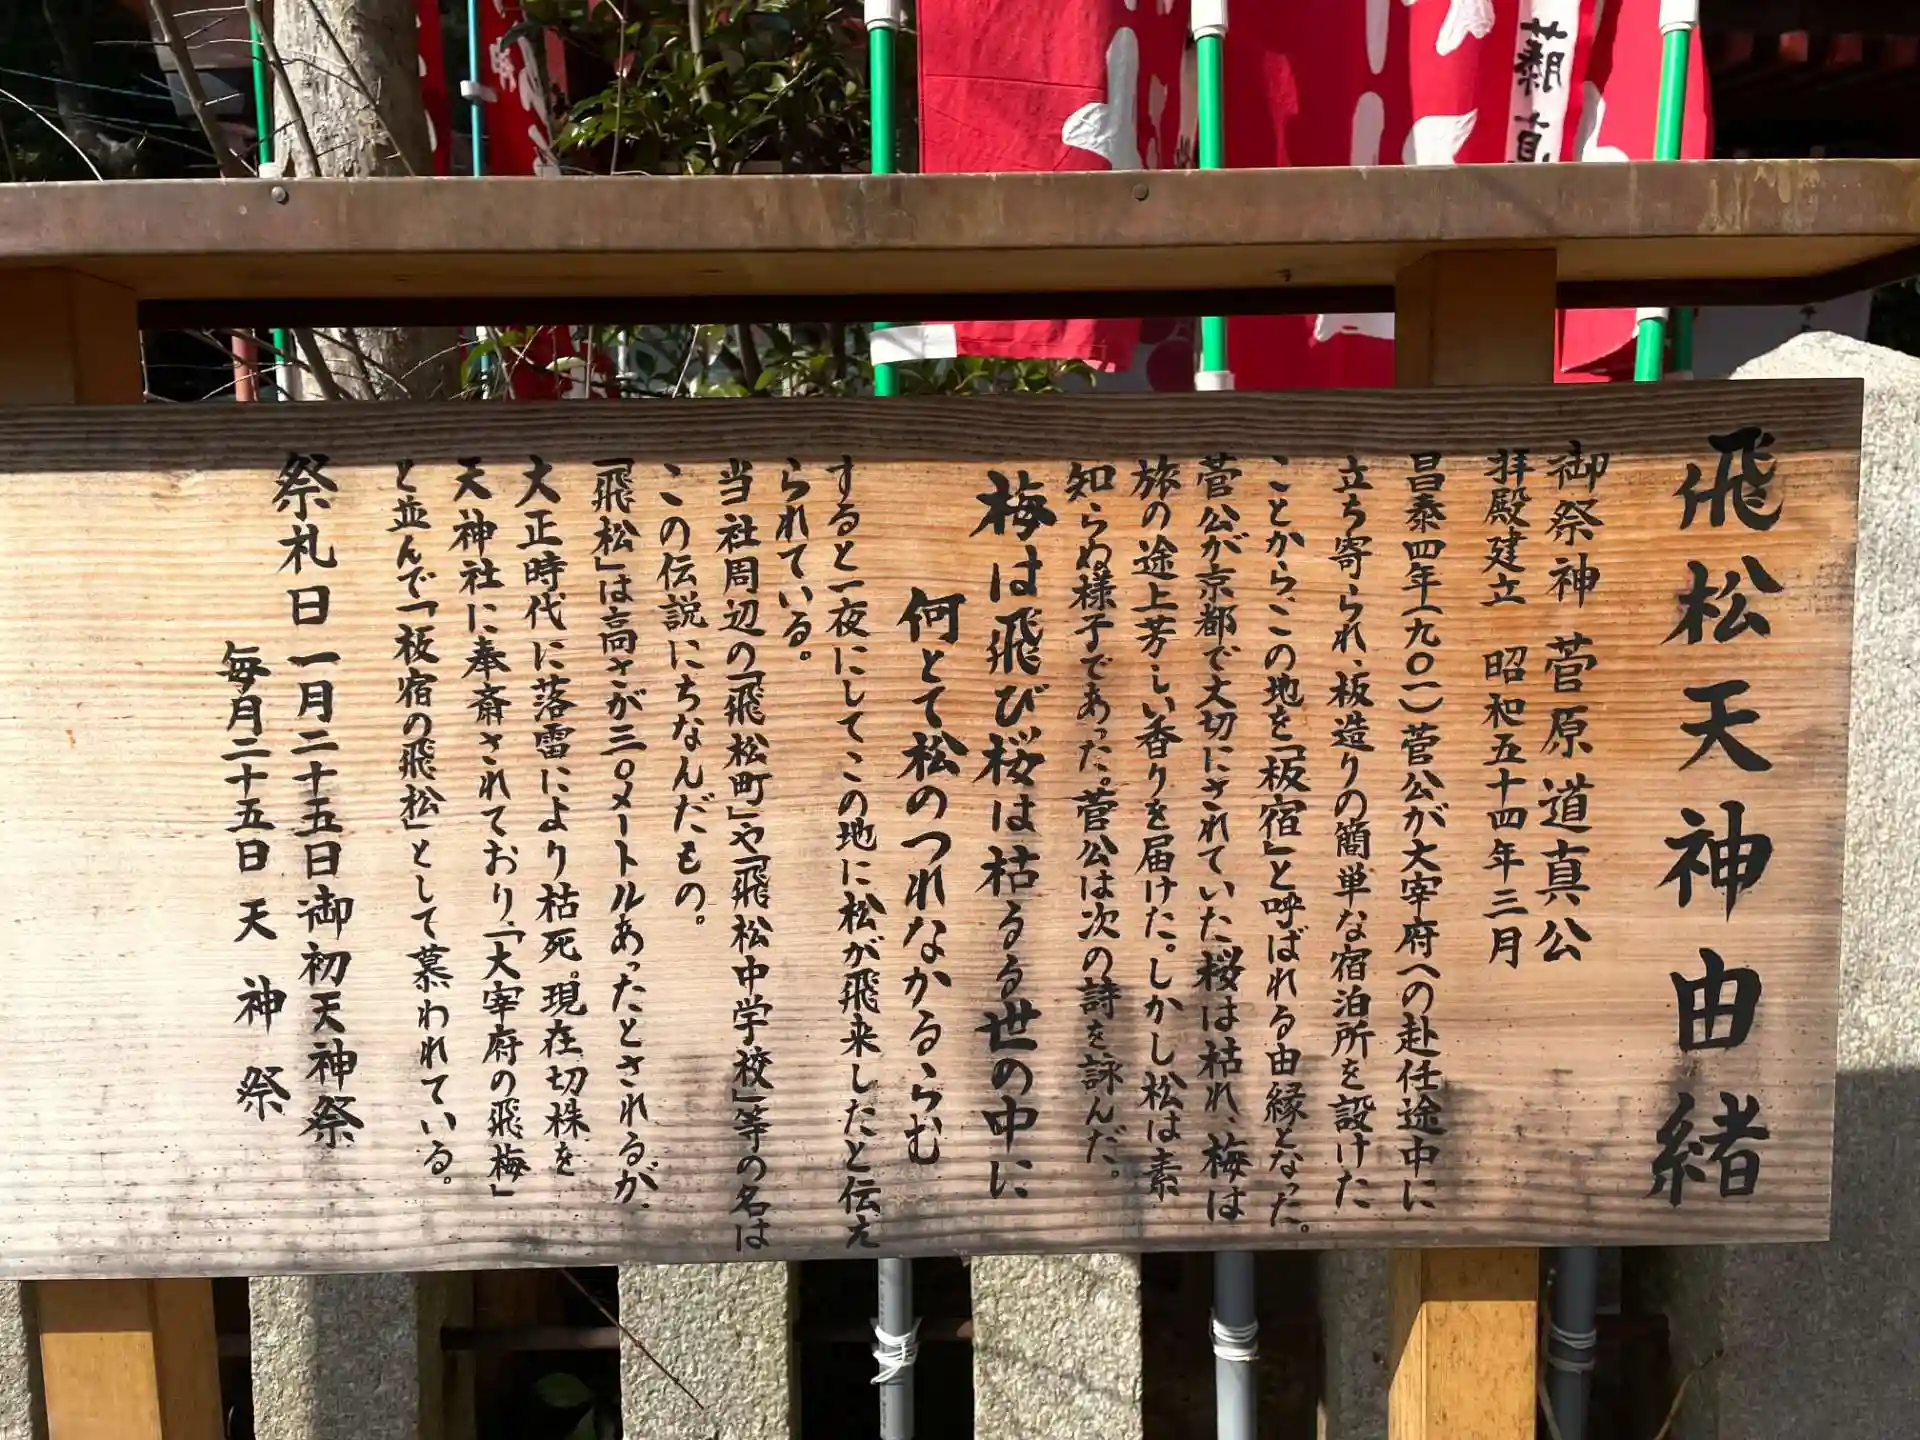 飛松天神由緒
御祭神 菅原道真公
拝殿建立 昭和五十四年三月
昌泰四年(九〇一)菅公が大宰府への赴任途中に
立ち寄られ、板造りの簡単な宿泊所を設けた
ことから、この地を「板宿」と呼ばれる由縁となった。
菅公が京都で大切にされていた桜は枯れ、梅は
旅の途上芳しい香りを届けた。しかし松は素
知らぬ様子であった。菅公は次の詩を詠んだ。
梅は飛び桜は枯るる世の中に
何とて松のつれなかるらむ
すると一夜にしてこの地に松が飛来したと伝え
られている。
当社周辺の「飛松町」や「飛松中学校」等の名は
この伝説にちなんだもの。
「飛松」は高さが三〇メートルあったとされるが、
大正時代に落雷により枯死。現在、切株を
天神社に奉斎されており、「大宰府の飛梅」
と並んで「板宿の飛松」として慕われている。
祭礼日 一月二十五日 御初天神祭
毎月二十五日 天神祭
藤